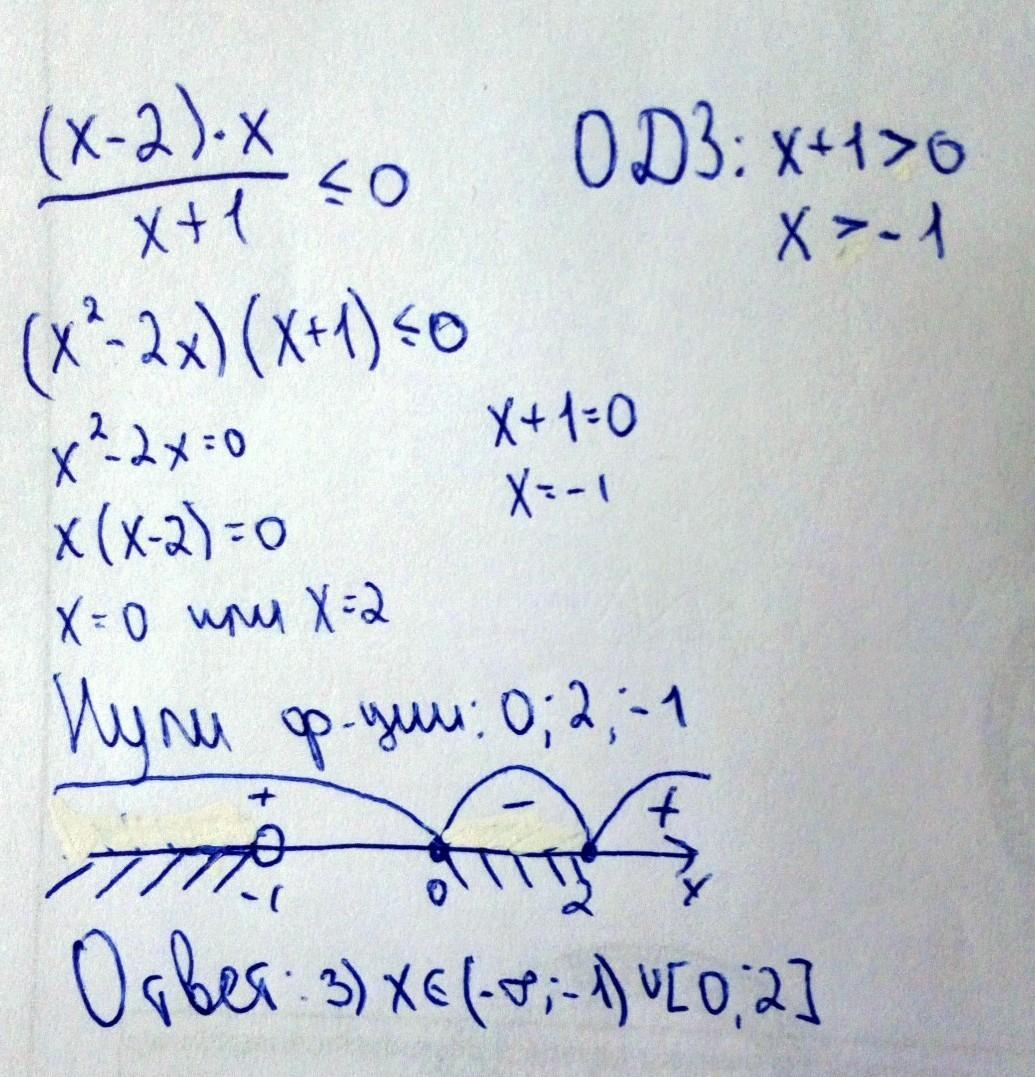 (x-2)·x / x+1 ≤ 0
ОДЗ: x+1>0
x>-1
(x²-2x)(x+1)≤0
x²-2x=0
x+1=0
x=-1
x(x-2)=0
x=0 или x=2
Нули ф-ции: 0; 2; -1
+ - +
-1 0 2 x
Ответ: 3) x∈(-∞;-1)∪[0;2]